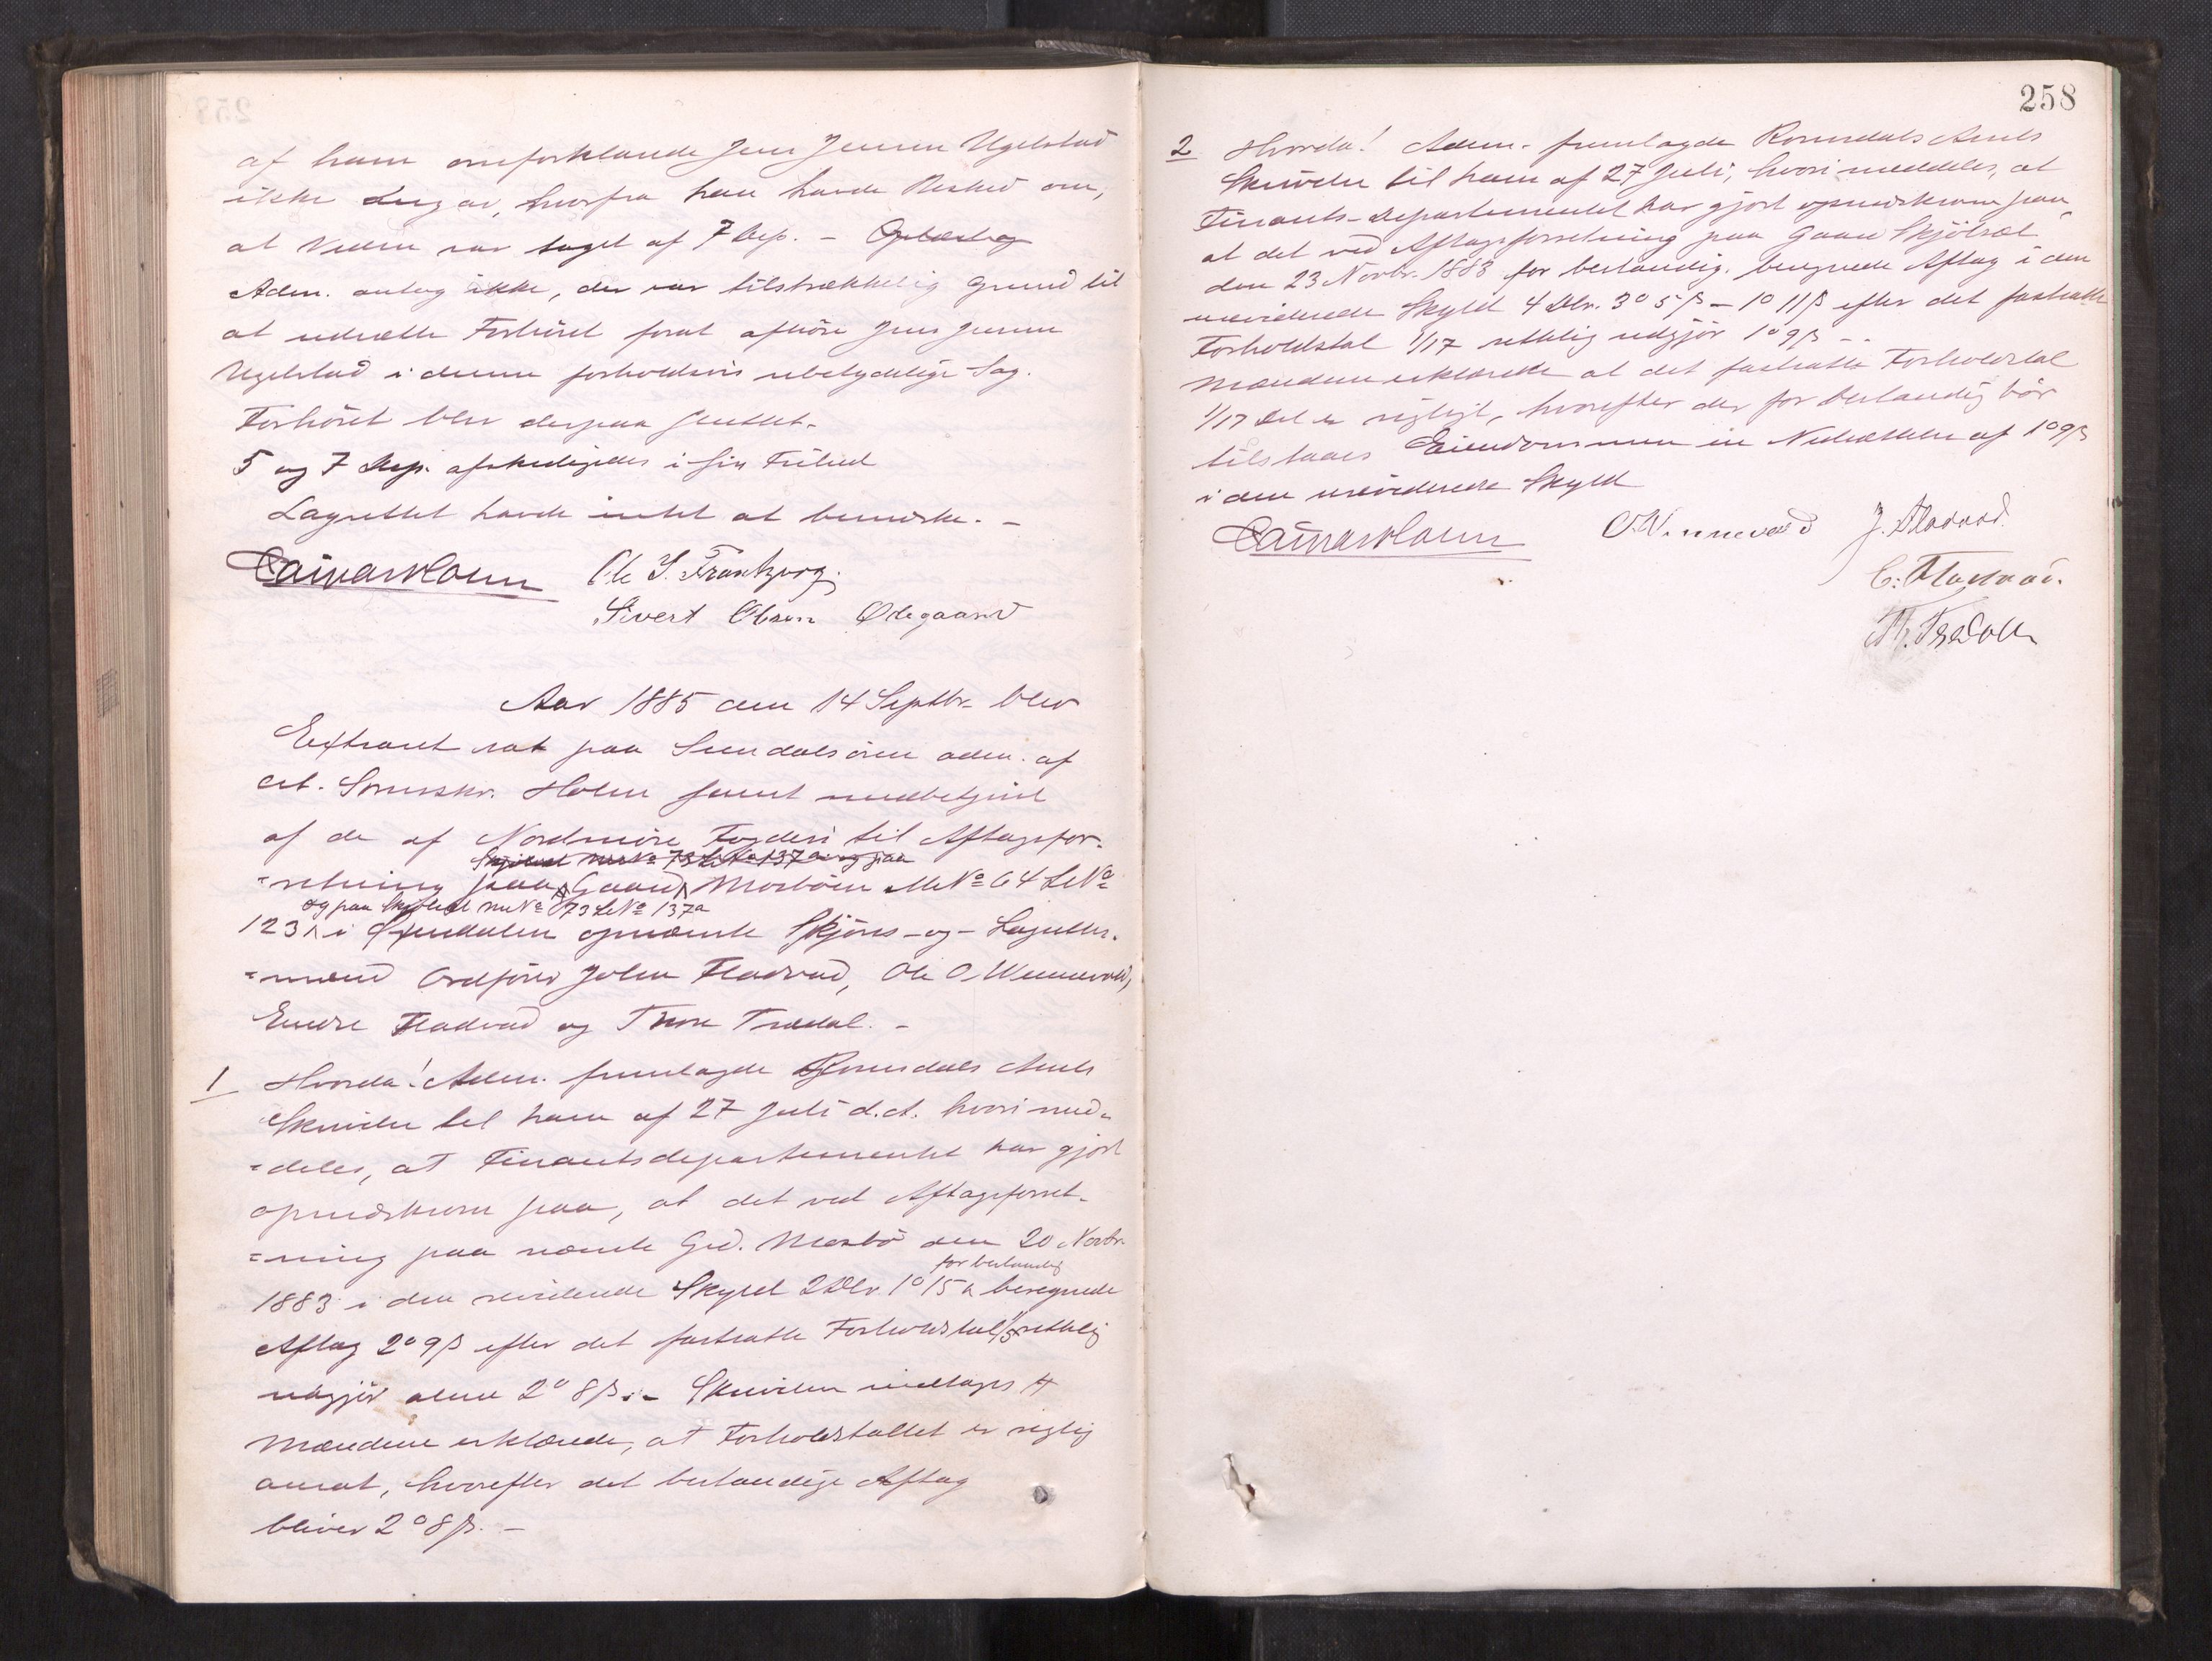 af ham omforklarede Jens Jensen Ugelstad
ikke angav, hvorfra han havde Besked om,
at Veden var taget af 7 Dep. –
Adm. antog ikke, der var tilstrækkelig Grund til
at udsætte Forhöret forat afhöre Jens Jensen
Ugelstad i denne forholdsvis ubetydelige Sag.
Forhöret blev derpaa sluttet.
5 og 7 Dep. afskedigedes i sin Frihed
Lagrettet havde intet at bemærke. –
Ejnar Holm Ole S. Trønbjorg.
Sivert Olsen Ødegaard
Aar 1885 den 14 Septbr. blev
Extraret sat paa Sundalsören adm. af
cst. Sorenskr. Holm samt medbetjent
af de af Nordmöre Fogderi til Aftagsfor-
Skjölsæt MNo 73 LNo 137a og paa
=retning paa Gaard Morböen MNo 64 LNo
og paa Skjölsæt MNo 73 LNo 137a
123 i Sundalen opnævnte Skjöns-og-Lagrettes-
=mænd Ordförer John Fladvad, Ole O. Wennevold,
Endre Fladvad og Thore Trædal. –
1 Hvorda! Adm. fremlagde Romsdals Amts
Skrivelse til ham af 27 Juli d.A. hvori med-
=deles, at Finantsdepartementet har gjort
opmærksom paa, at det ved Aftagsforret-
=ning paa nævnte Grd. Morbö den 20 Novbr.
for bestandig
1883 i den reviderede Skyld 2 Dlr. 1 o 15 ß beregnede
Aftag 2 o 9 ß efter det fastsatte Forholdstal rettelig
udgjör alene 2 o 8 ß. – Skrivelsen vedtages
Mændene erklærede, at Forholdstallet er rigtig
ansat, hvorefter det bestandige Aftag
bliver 2 o 8 ß. –
258
2 Hvorda! Adm. fremlagde Romsdals Amts
Skrivelse til ham af 27 Juli, hvori meddeles, at
Finants-Departementet har gjort opmærksom paa,
at det ved Aftagsforretning paa Gaard Skjölsæt
den 23 Novbr. 1883 for bestandig beregnede Aftag i den
ureviderede Skyld 4 Dlr. 3 o 5 ß – 1 o 11 ß efter det fastsatte
Forholdstal 1/17 rettelig udgjör 1 o 9 ß –
Mændene erklærede at det fastsatte Forholdstal
1/17 Del er rigtigt, hvorefter der for bestandig bör
tilstaaes Eiendommen en Nedsættelse af 1 o 9 ß
i den ureviderede Skyld
Ejnar Holm O. Wennevold J. Fladvad.
E. Fladvad.
Th. Trædall